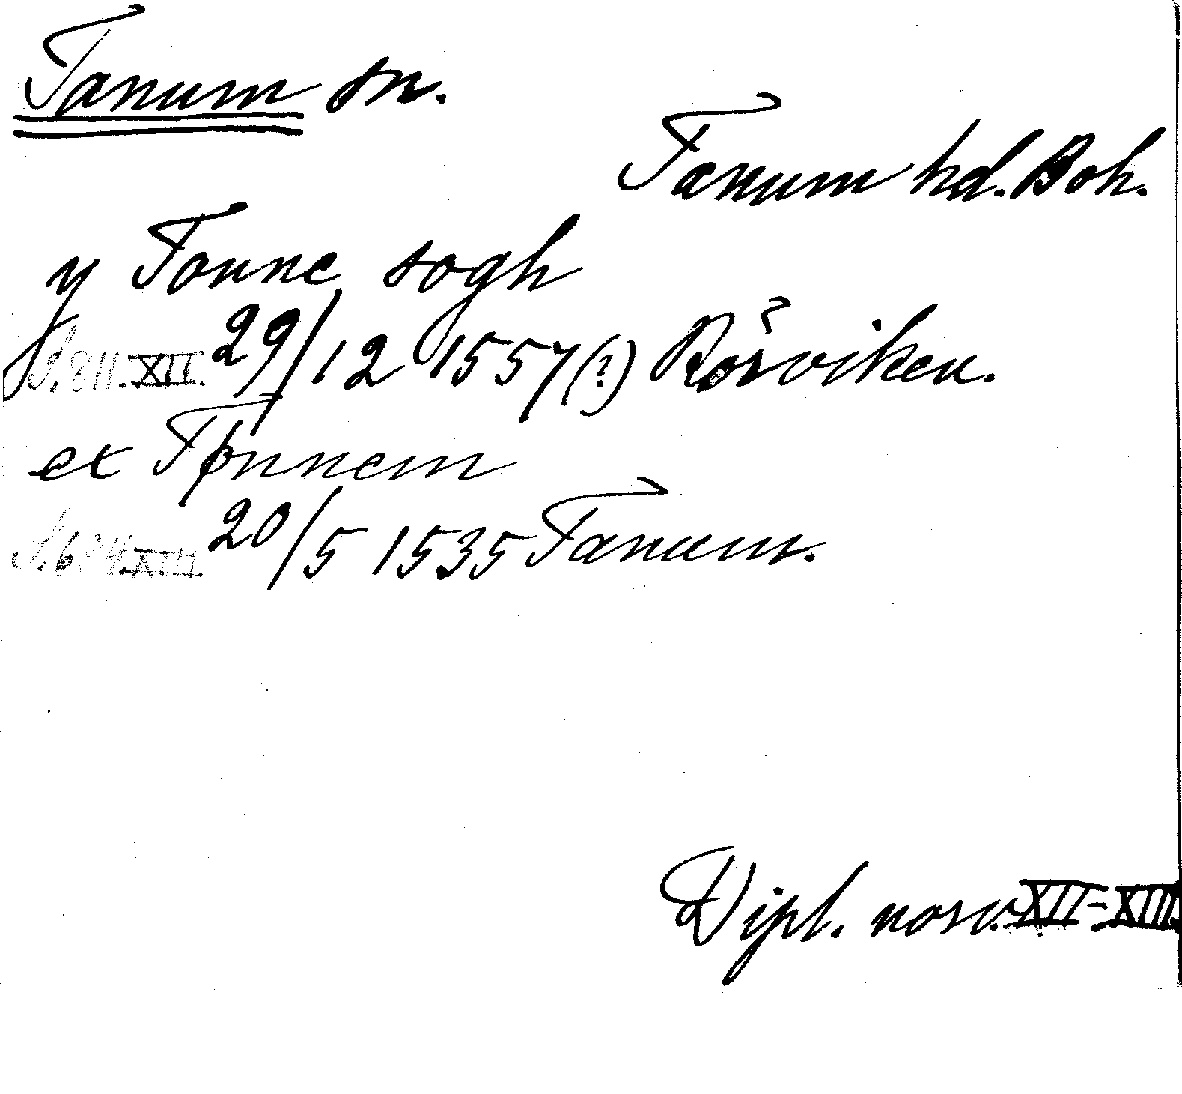 Tanum sn.
Tanum hd. Boh.
y Tonne sogh
S. 811. XII. 29/12 1557(?) Rörviken.
ex Tønnem
XIII. 20/5 1535 Tanum.
Dipl. norv. XII-XIII